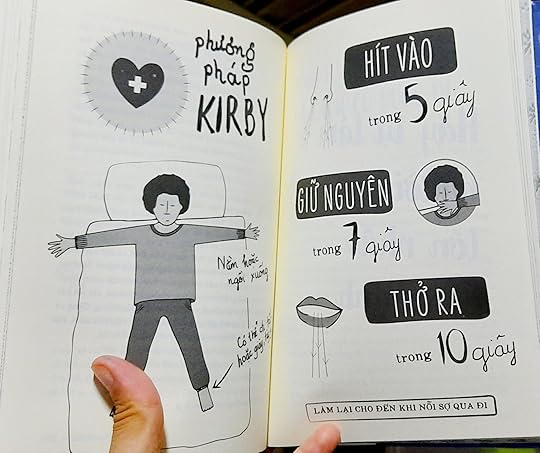 phương
pháp
KIRBY
Nằm hoặc
ngồi xuống
Có thể đi
hoặc giày
HÍT VÀO
trong 5 giây
GIỮ NGUYÊN
trong 7 giây
THỞ RA
trong 10 giây
LÀM LẠI CHO ĐẾN KHI NỖI SỢ QUA ĐI